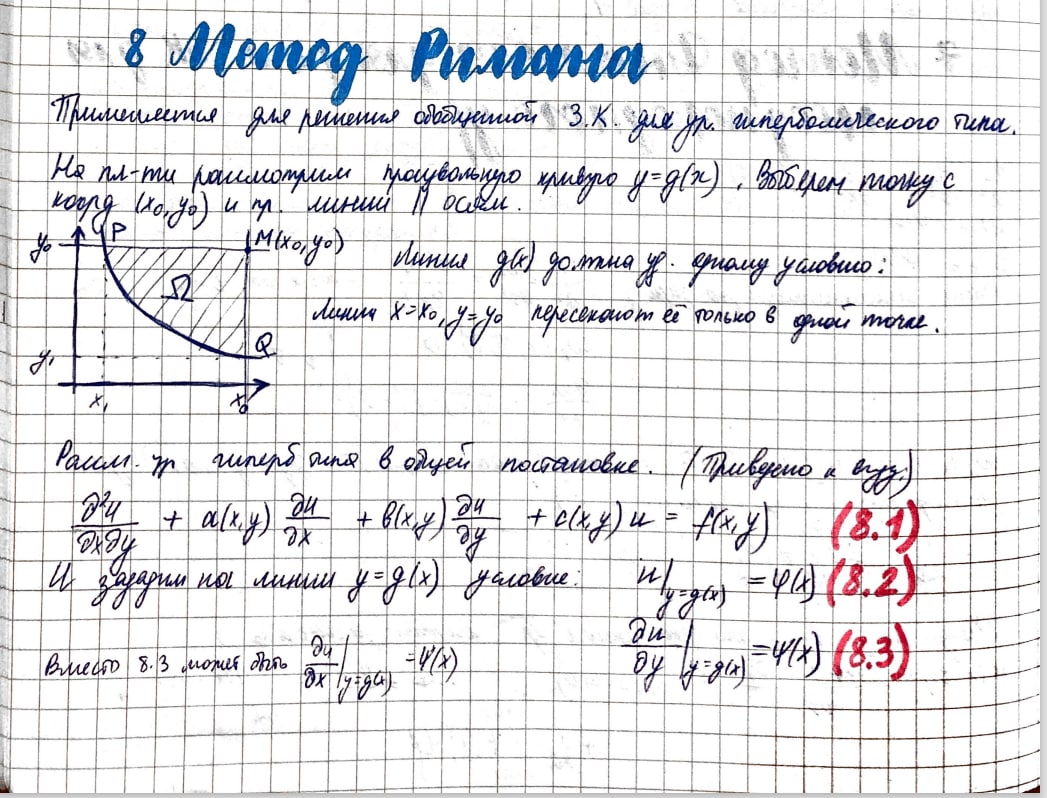 8 Метод Римана
Применяется для решения обобщенной З.К. для ур. гиперболического типа.
На пл-ти рассмотрим произвольную кривую y=g(x). Выберем точку с
коорд (x₀,y₀) и пр. линии || осям.
y₀ P M(x₀,y₀)
Линия g(x) должна уд. одному условию:
Ω
Линии x=x₀, y=y₀ пересекают её только в одной точке.
y₁ Q
x₁ x₀
Рассм. ур гиперб типа в общей постановке. (Приведено к виду)
∂²u/∂x∂y + a(x,y) ∂u/∂x + b(x,y) ∂u/∂y + c(x,y) u = f(x,y) (8.1)
И зададим на линии y=g(x) условие: u|y=g(x) = φ(x) (8.2)
∂u/∂y|y=g(x) = ψ(x) (8.3)
Вместо 8.3 может быть ∂u/∂x|y=g(x) = ψ(x)